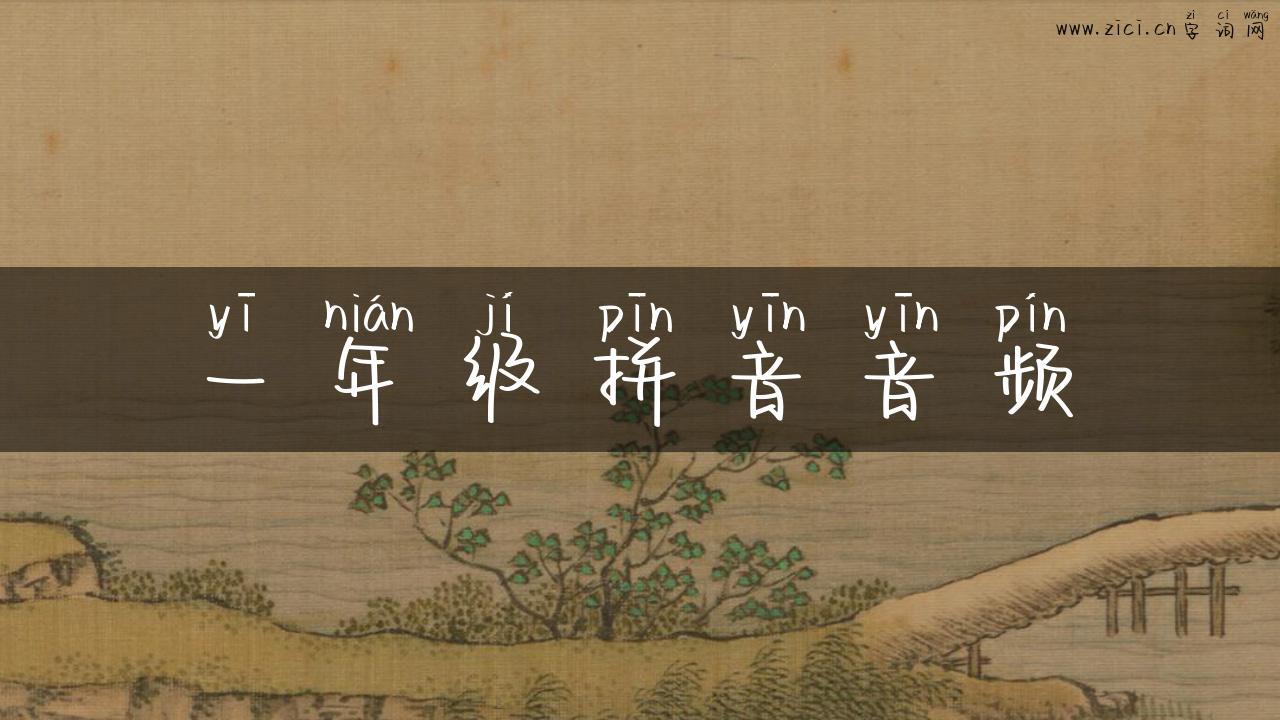 zì cí wǎng
www.zici.cn 字词网
yī nián jí pīn yīn yīn pín
一年级拼音音频